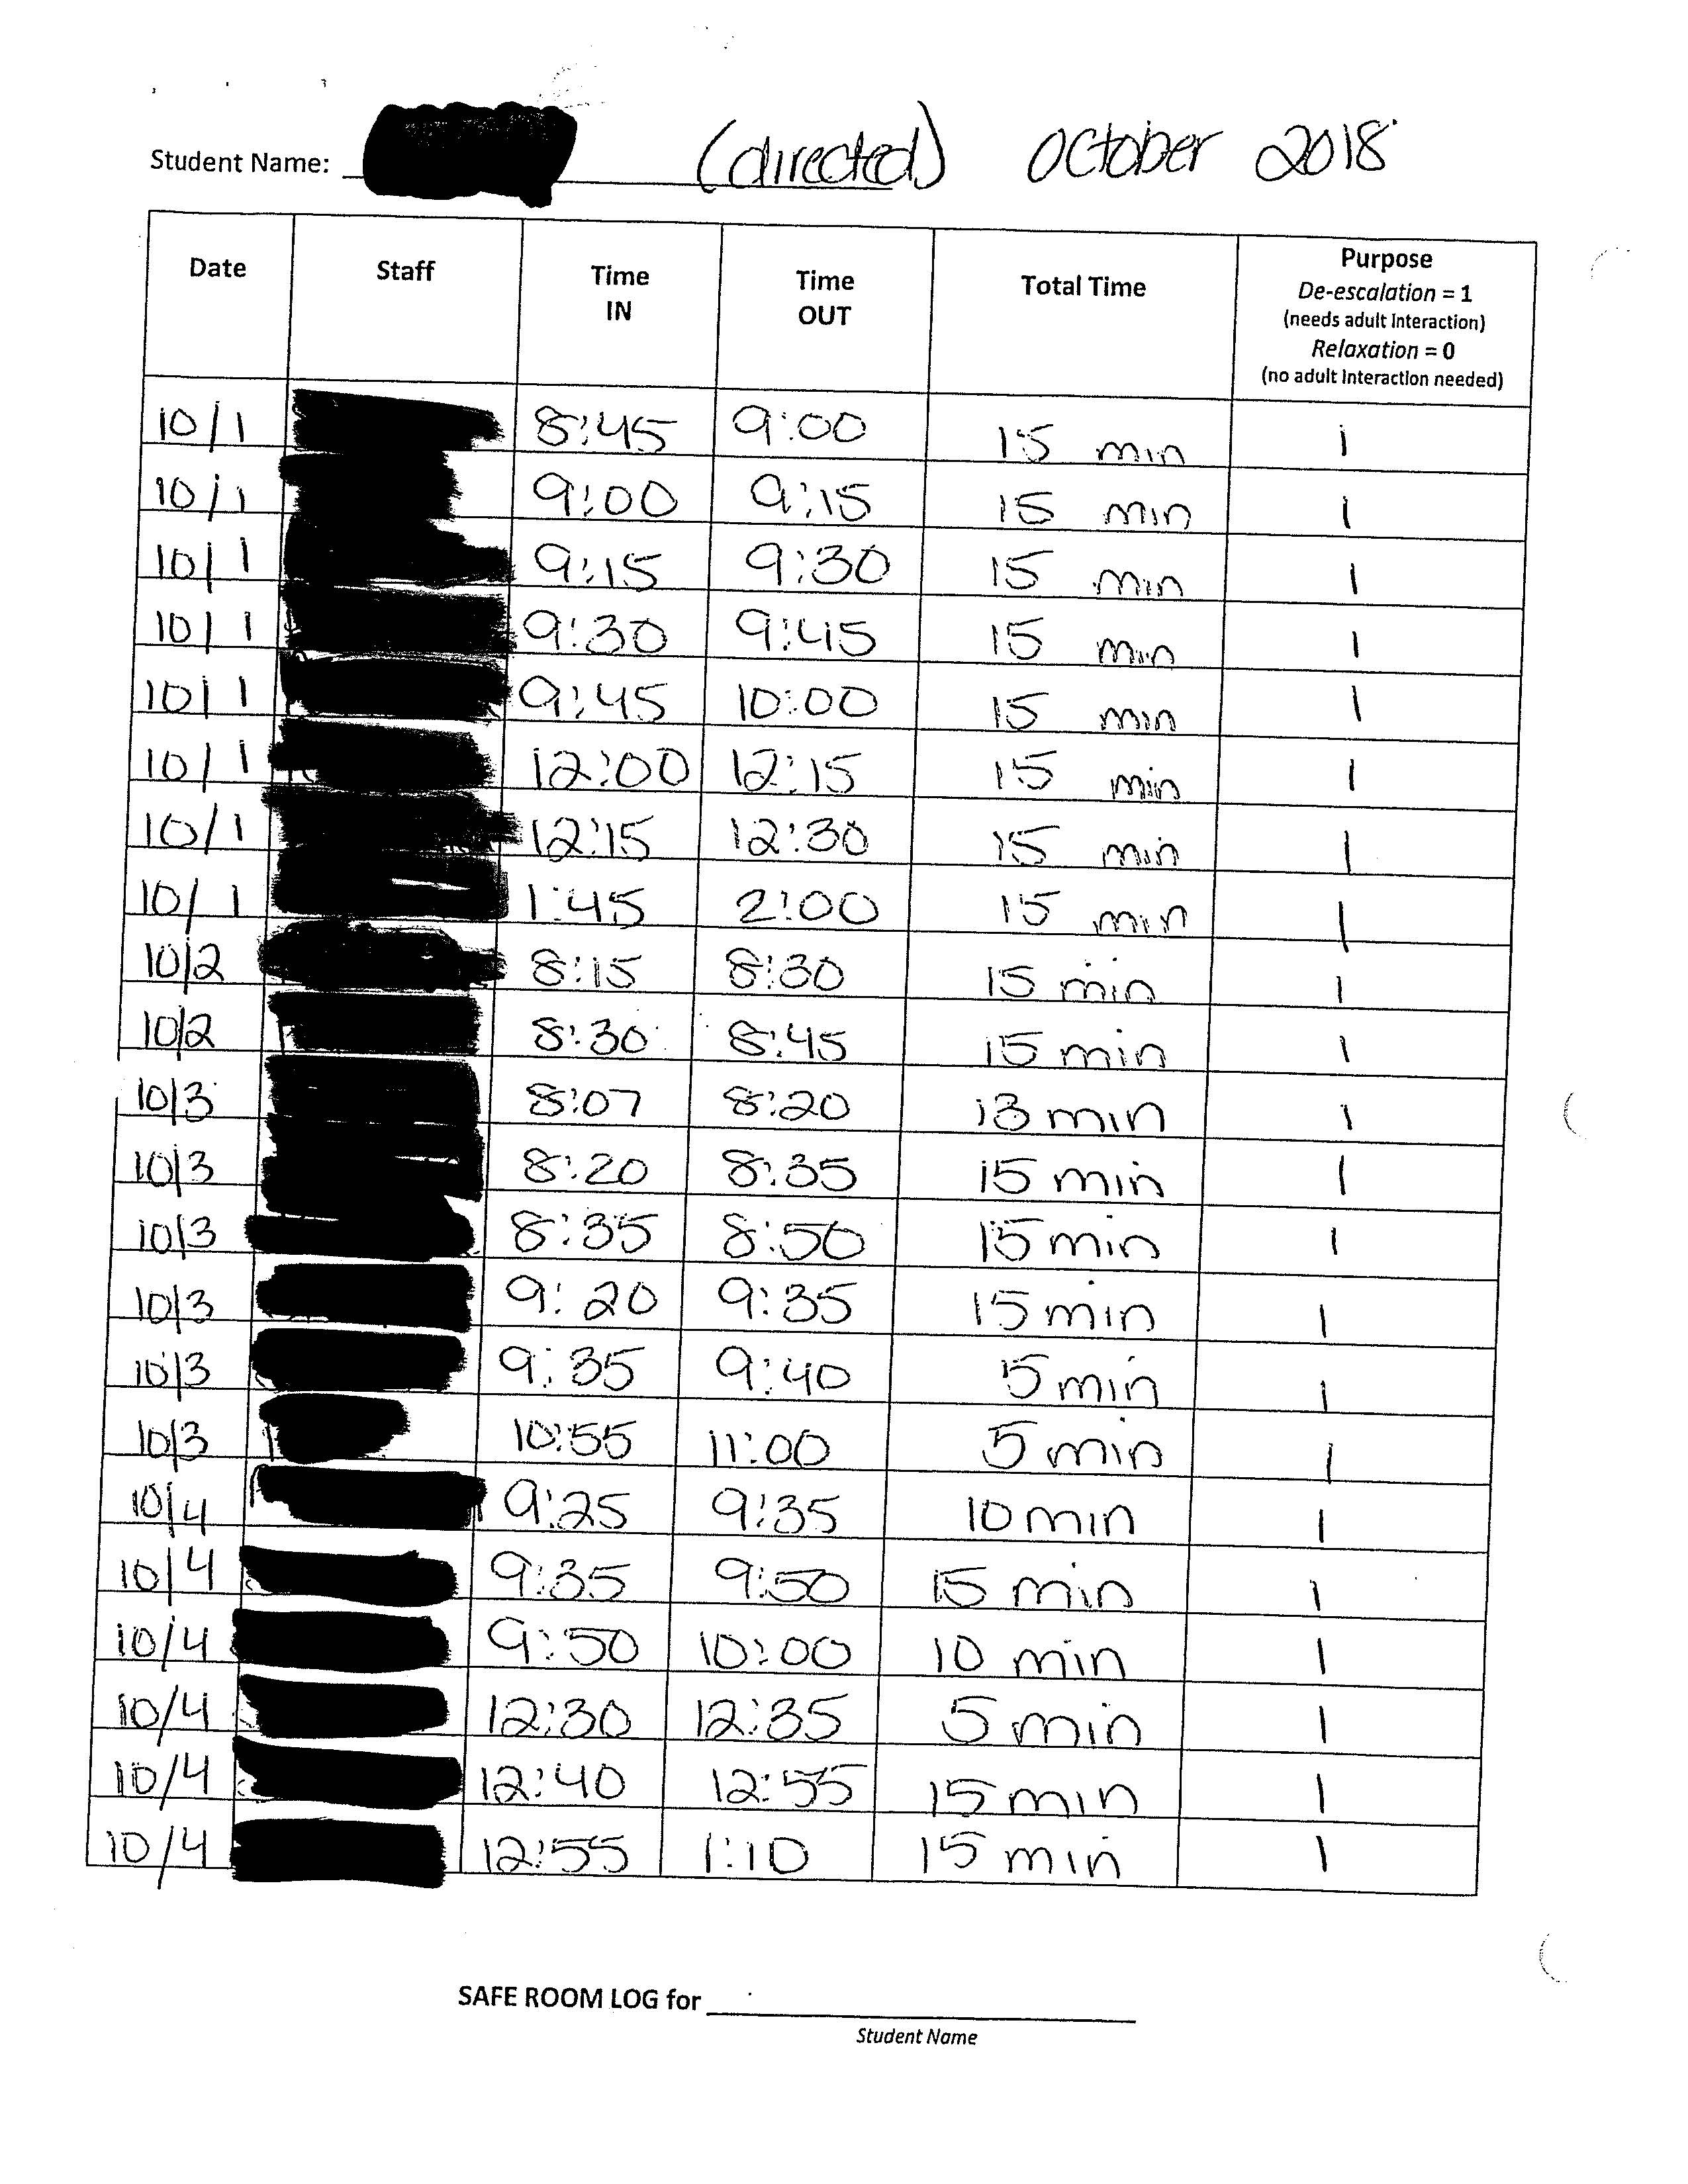 Student Name: (directed) October 2018
Date Staff Time IN Time OUT Total Time Purpose
De-escalation = 1
(needs adult Interaction)
Relaxation = 0
(no adult Interaction needed)
10/1 8:45 9:00 15 min 1
10/1 9:00 9:15 15 min 1
10/1 9:15 9:30 15 min 1
10/1 9:30 9:45 15 min 1
10/1 9:45 10:00 15 min 1
10/1 12:00 12:15 15 min 1
10/1 12:15 12:30 15 min 1
10/1 1:45 2:00 15 min 1
10/2 8:15 8:30 15 min 1
10/2 8:30 8:45 15 min 1
10/3 8:07 8:20 13 min 1
10/3 8:20 8:35 15 min 1
10/3 8:35 8:50 15 min 1
10/3 9:20 9:35 15 min 1
10/3 9:35 9:40 5 min 1
10/3 10:55 11:00 5 min 1
10/4 9:25 9:35 10 min 1
10/4 9:35 9:50 15 min 1
10/4 9:50 10:00 10 min 1
10/4 12:30 12:35 5 min 1
10/4 12:40 12:55 15 min 1
10/4 12:55 1:10 15 min 1
SAFE ROOM LOG for
Student Name